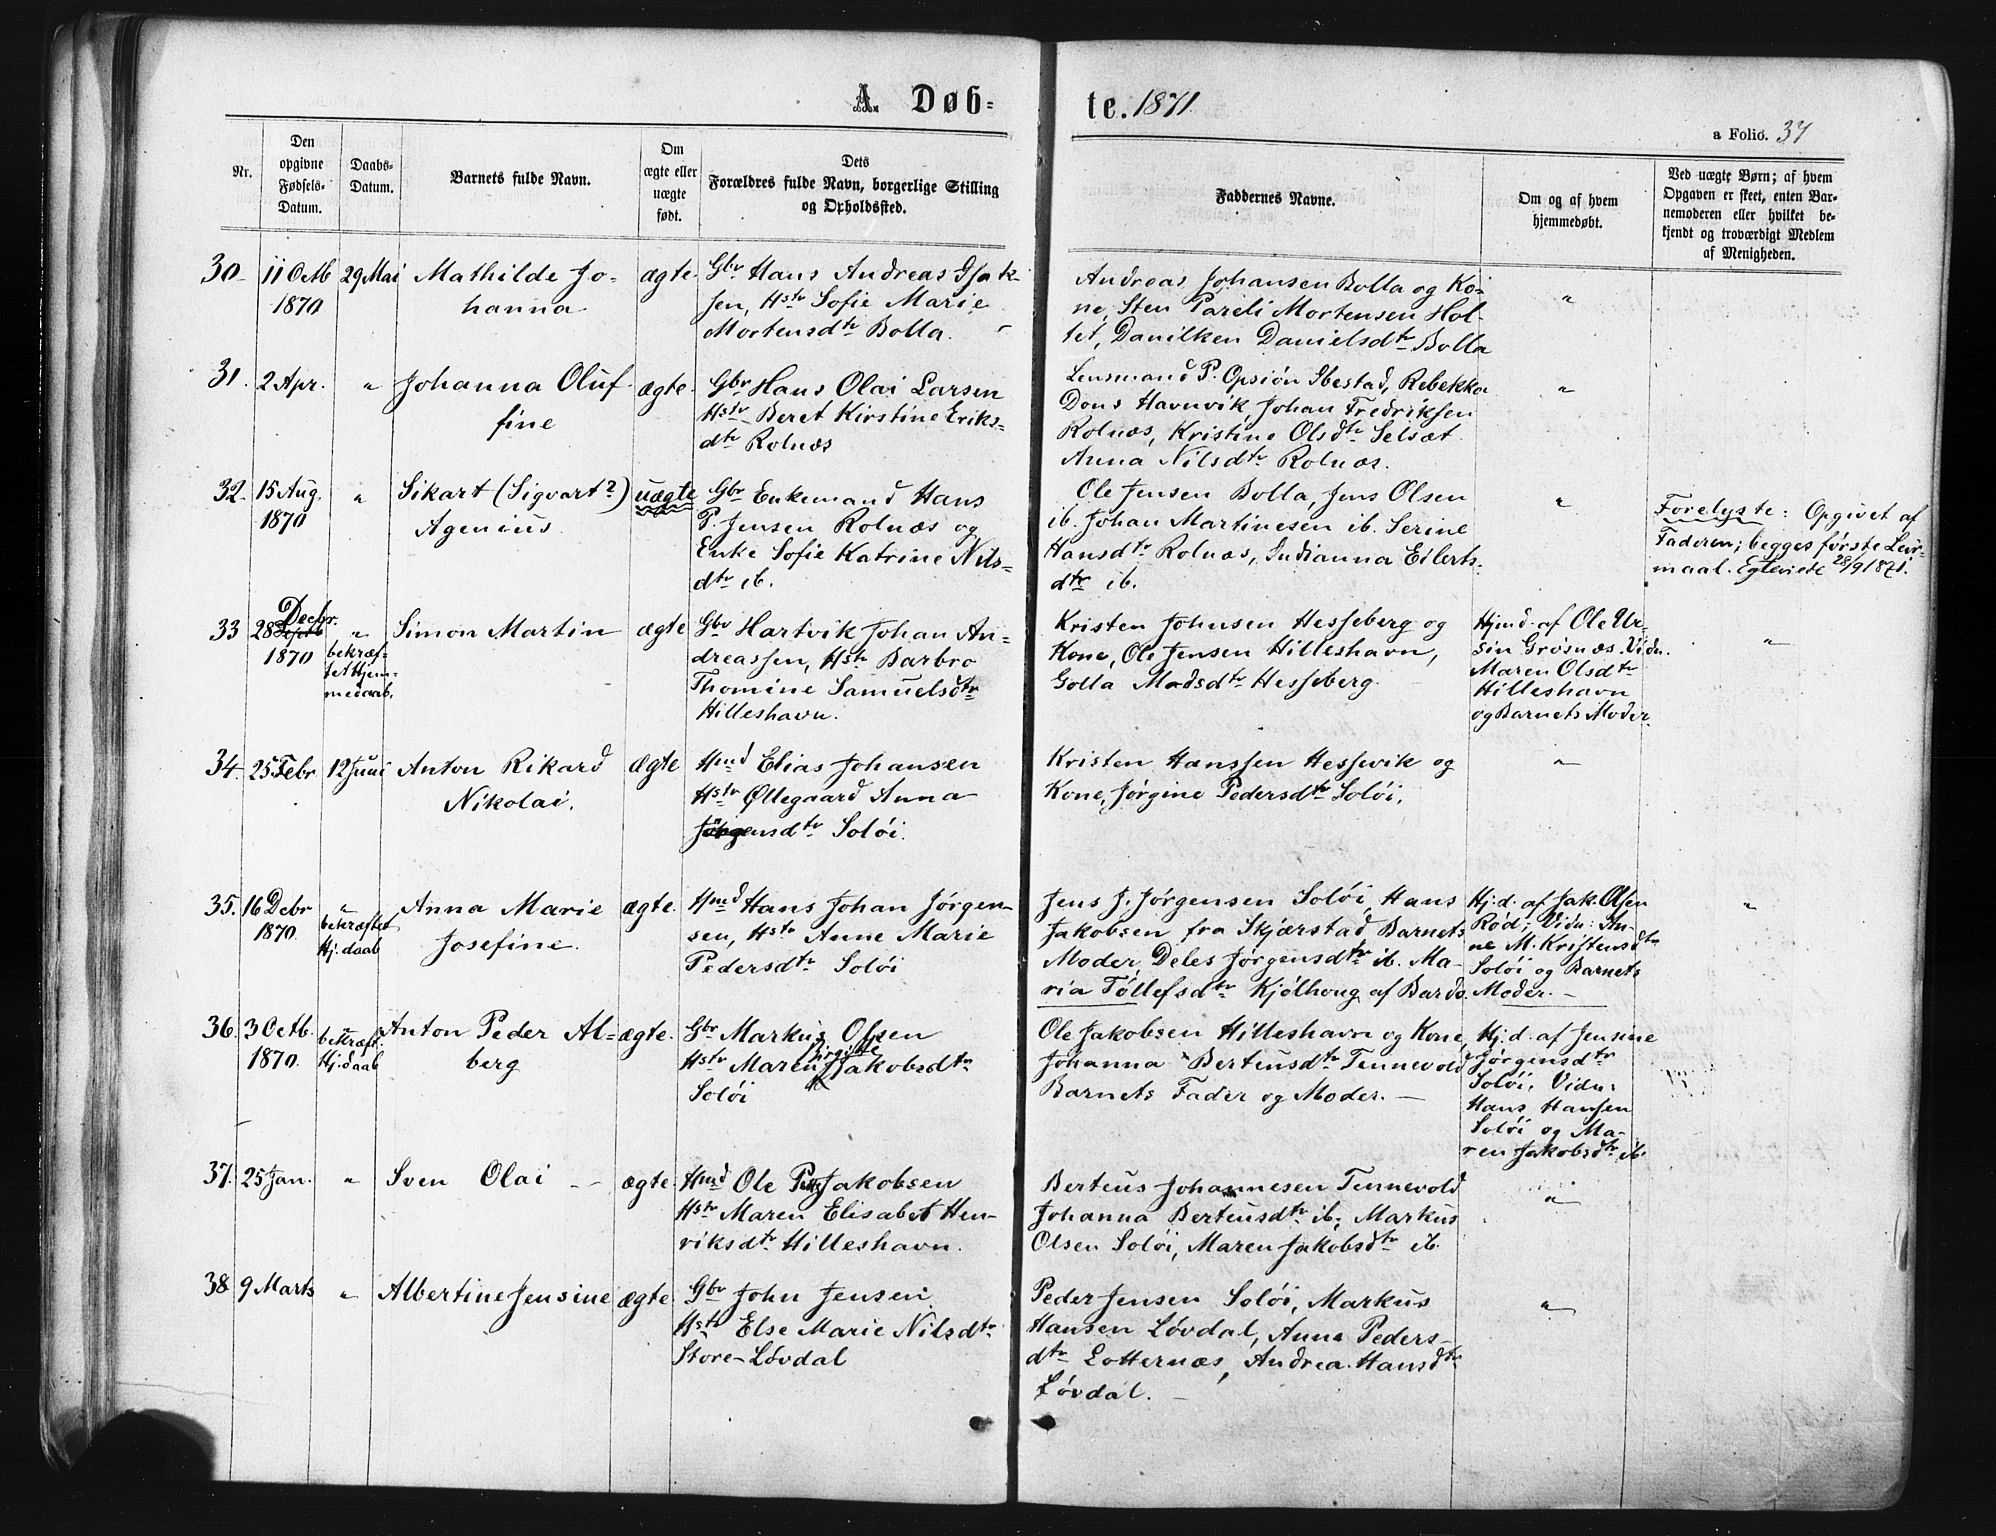 A. Døb-
te. 1871
a Folio. 37
Nr.
Den
opgivne
Fødsels-
Datum.
Daabs-
Datum.
Barnets fulde Navn.
Om
ægte eller
uægte
født.
Dets
Forældres fulde Navn, borgerlige Stilling
og Opholdssted.
Faddernes Navne.
Om og af hvem
hjemmedøbt.
Ved uægte Børn; af hvem
Opgaven er skeet, enten Bar-
nemoderen eller hvilket be-
kjendt og troværdigt Medlem
af Menigheden.
30
11 Octb
1870
29 Mai
Mathilde Jo-
hanna
ægte
Gbr Hans Andreas Isak-
sen, Hstr Sofie Marie
Mortensdtr Bolla.
Andreas Johansen Bolla og Ko-
ne, Sten Pareli Mortensen Hol-
tet, Danilken Danielsdtr Bolla
"
31.
2 Apr.
"
Johanna Oluf
fine
ægte.
Gbr Hans Olai Larsen
Hstr Beret Kirstine Eriks-
dtr Rolnæs
Lensmand P. Opsiøn Ibestad, Rebekka
Dons Havnvik, Johan Fredriksen
Rolnæs, Kristine Olsdtr Selsæt
Anna Nilsdtr Rolnæs.
"
32.
15 Aug.
1870
"
Sikart (Sigvart?)
Agenius
uægte
Gbr Enkemand Hans
P. Jensen Rolnæs og
Enke Sofie Katrine Nils-
dtr ib.
Ole Jensen Bolla, Jens Olsen
ib. Johan Martinesen ib. Serine
Hansdtr Rolnæs, Indianna Eilerts-
dtr ib.
"
Forelyste: Opgivet af
Faderen; begges første Leir-
maal. Egteviede 28/9 1871.
33
28 Decbr.
Septb
1870
"
bekræf-
tet Hjem-
medaab.
Simon Martin
ægte
Gbr Hartvik Johan An-
dreassen, Hstr Barbro
Thomine Samuelsdtr
Hilleshavn.
Kristen Johnsen Hesseberg og
Kone, Ole Jensen Hilleshavn,
Golla Madsdtr Hesseberg.
Hjmd. af Ole Ur-
sin Grøsnæs. Vidn.
Maren Olsdtr
Hilleshavn
og Barnets Moder.
"
34
25 Febr
12 Juni
Anton Rikard
Nikolai.
ægte
Hmd Elias Johansen
Hstr Øllegaard Anna
Jørgensdtr Soløi.
Kristen Hanssen Hessevik og
Kone, Jørgine Pedersdtr Soløi.
"
35.
16 Debr
1870
"
bekræftet
Hj. daab
Anna Marie
Josefine.
ægte.
Hmd Hans Johan Jørgen-
sen, Hstr Anne Marie
Pedersdtr Soløi
Jens J. Jørgensen Soløi, Hans
Jakobsen fra Skjærstad Barnets
Moder, Deles Jørgensdtr ib. Ma-
ria Tøllefsdtr Kjølhoug af Bardo.
Hj. d. af Jak. Olsen
Rød; Vidn: An-
ne M. Kristensdtr
Soløi og Barnets
Moder. -
"
36.
3 Octb.
1870.
"
bekræft.
Hj. daab
Anton Peder Al-
berg
ægte.
Gbr Markus Olsen
Hstr Maren Birgitte Jakobsdtr
Soløi
Ole Jakobsen Hilleshavn og Kone,
Johanna Berteusdtr Tennevold
Barnets Fader og Moder. -
Hj. d. af Jensine
Jørgensdtr
Soløi, Vidn:
Hans Hansen
Soløi og Ma-
ren Jakobsdtr ib.
37.
25 Jan.
"
Sven Olai -
ægte
Hmd Ole Jakobsen
Hstr Maren Elisabet Hen-
riksdtr Hilleshavn.
Berteus Johannesen Tennevold
Johanna Berteusdtr ib, Markus
Olsen Soløi, Maren Jakobsdtr ib.
"
38
9 Marts
"
Albertine Jensine
ægte
Gbr John Jensen
Hstr Else Marie Nilsdtr
Store-Løvdal
Peder Jensen Soløi, Markus
Hansen Løvdal, Anne Peders-
dtr Lotternæs, Andrea Hansdtr
Løvdal. -
"